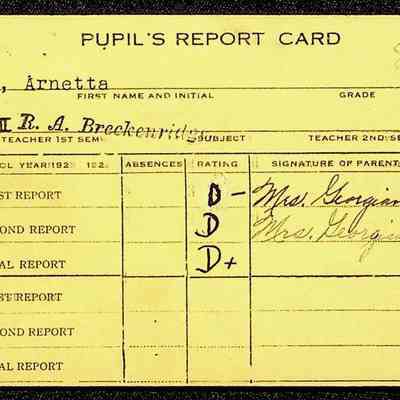 PUPIL'S REPORT CARD
, Arnetta
FIRST NAME AND INITIAL GRADE
II R. A. Breckenridge
TEACHER 1ST SEM. SUBJECT TEACHER 2ND SE
OL YEAR 192 192 ABSENCES RATING SIGNATURE OF PARENT
ST REPORT D - Mrs. Georgian
OND REPORT D Mrs. Georgia
AL REPORT D+
ST REPORT
OND REPORT
AL REPORT